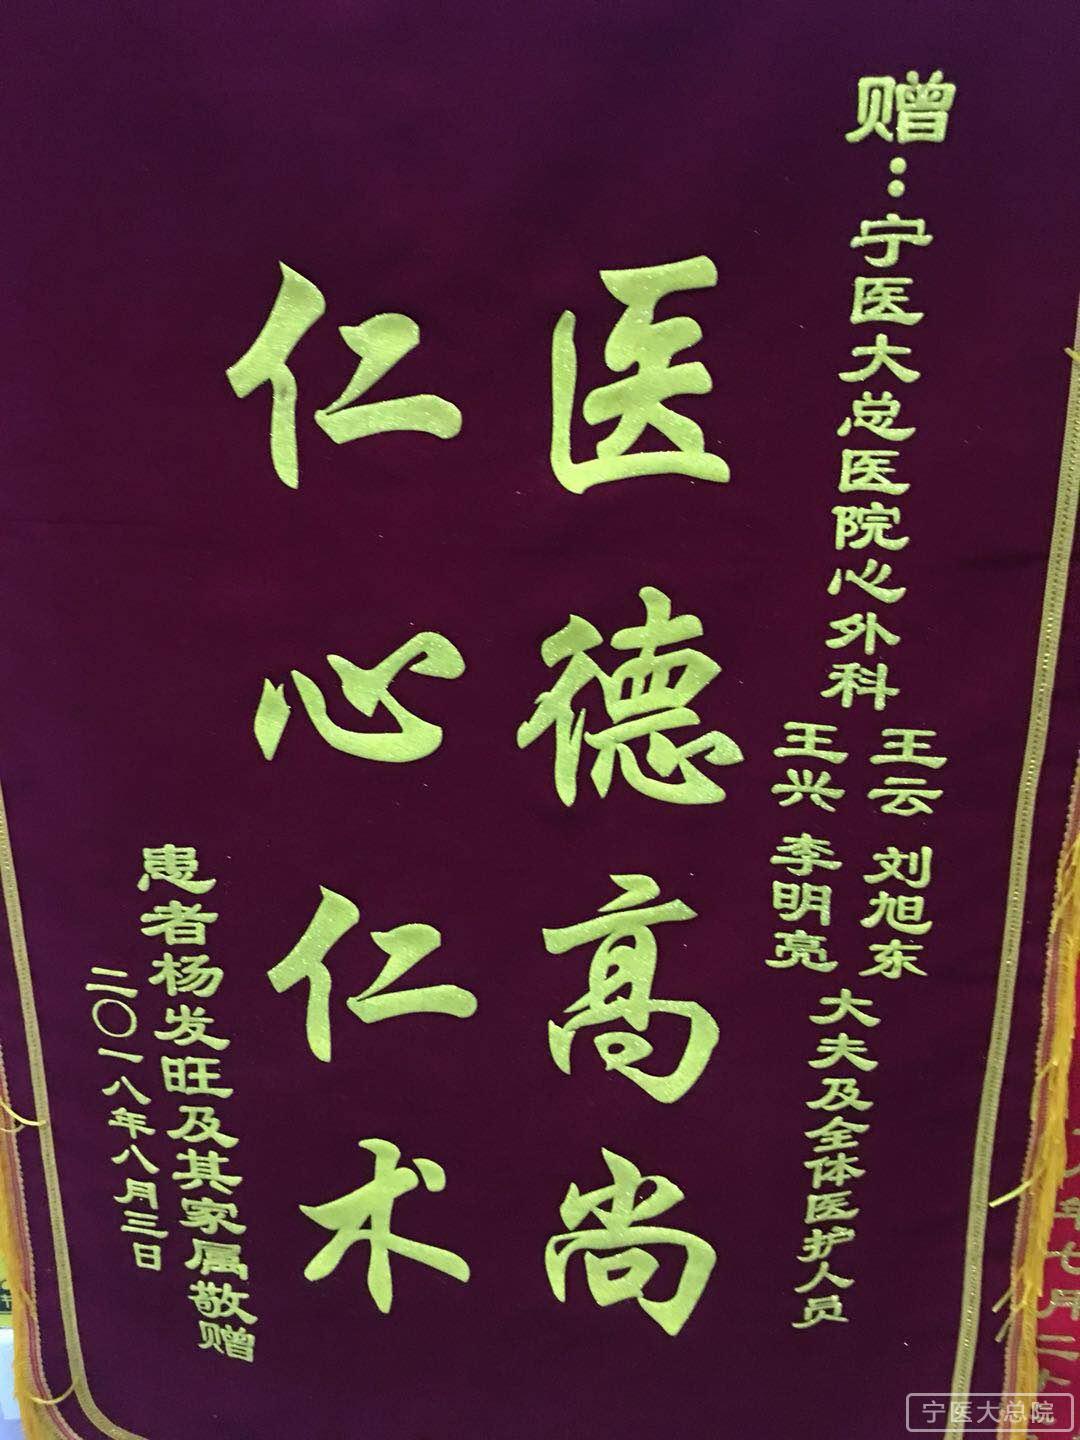 赠：宁医大总医院心外科
王云 刘旭东
王兴 李明亮
大夫及全体医护人员
医德高尚
仁心仁术
患者杨发旺及其家属敬赠
二〇一八年八月三日
年七月二
宁医大总院